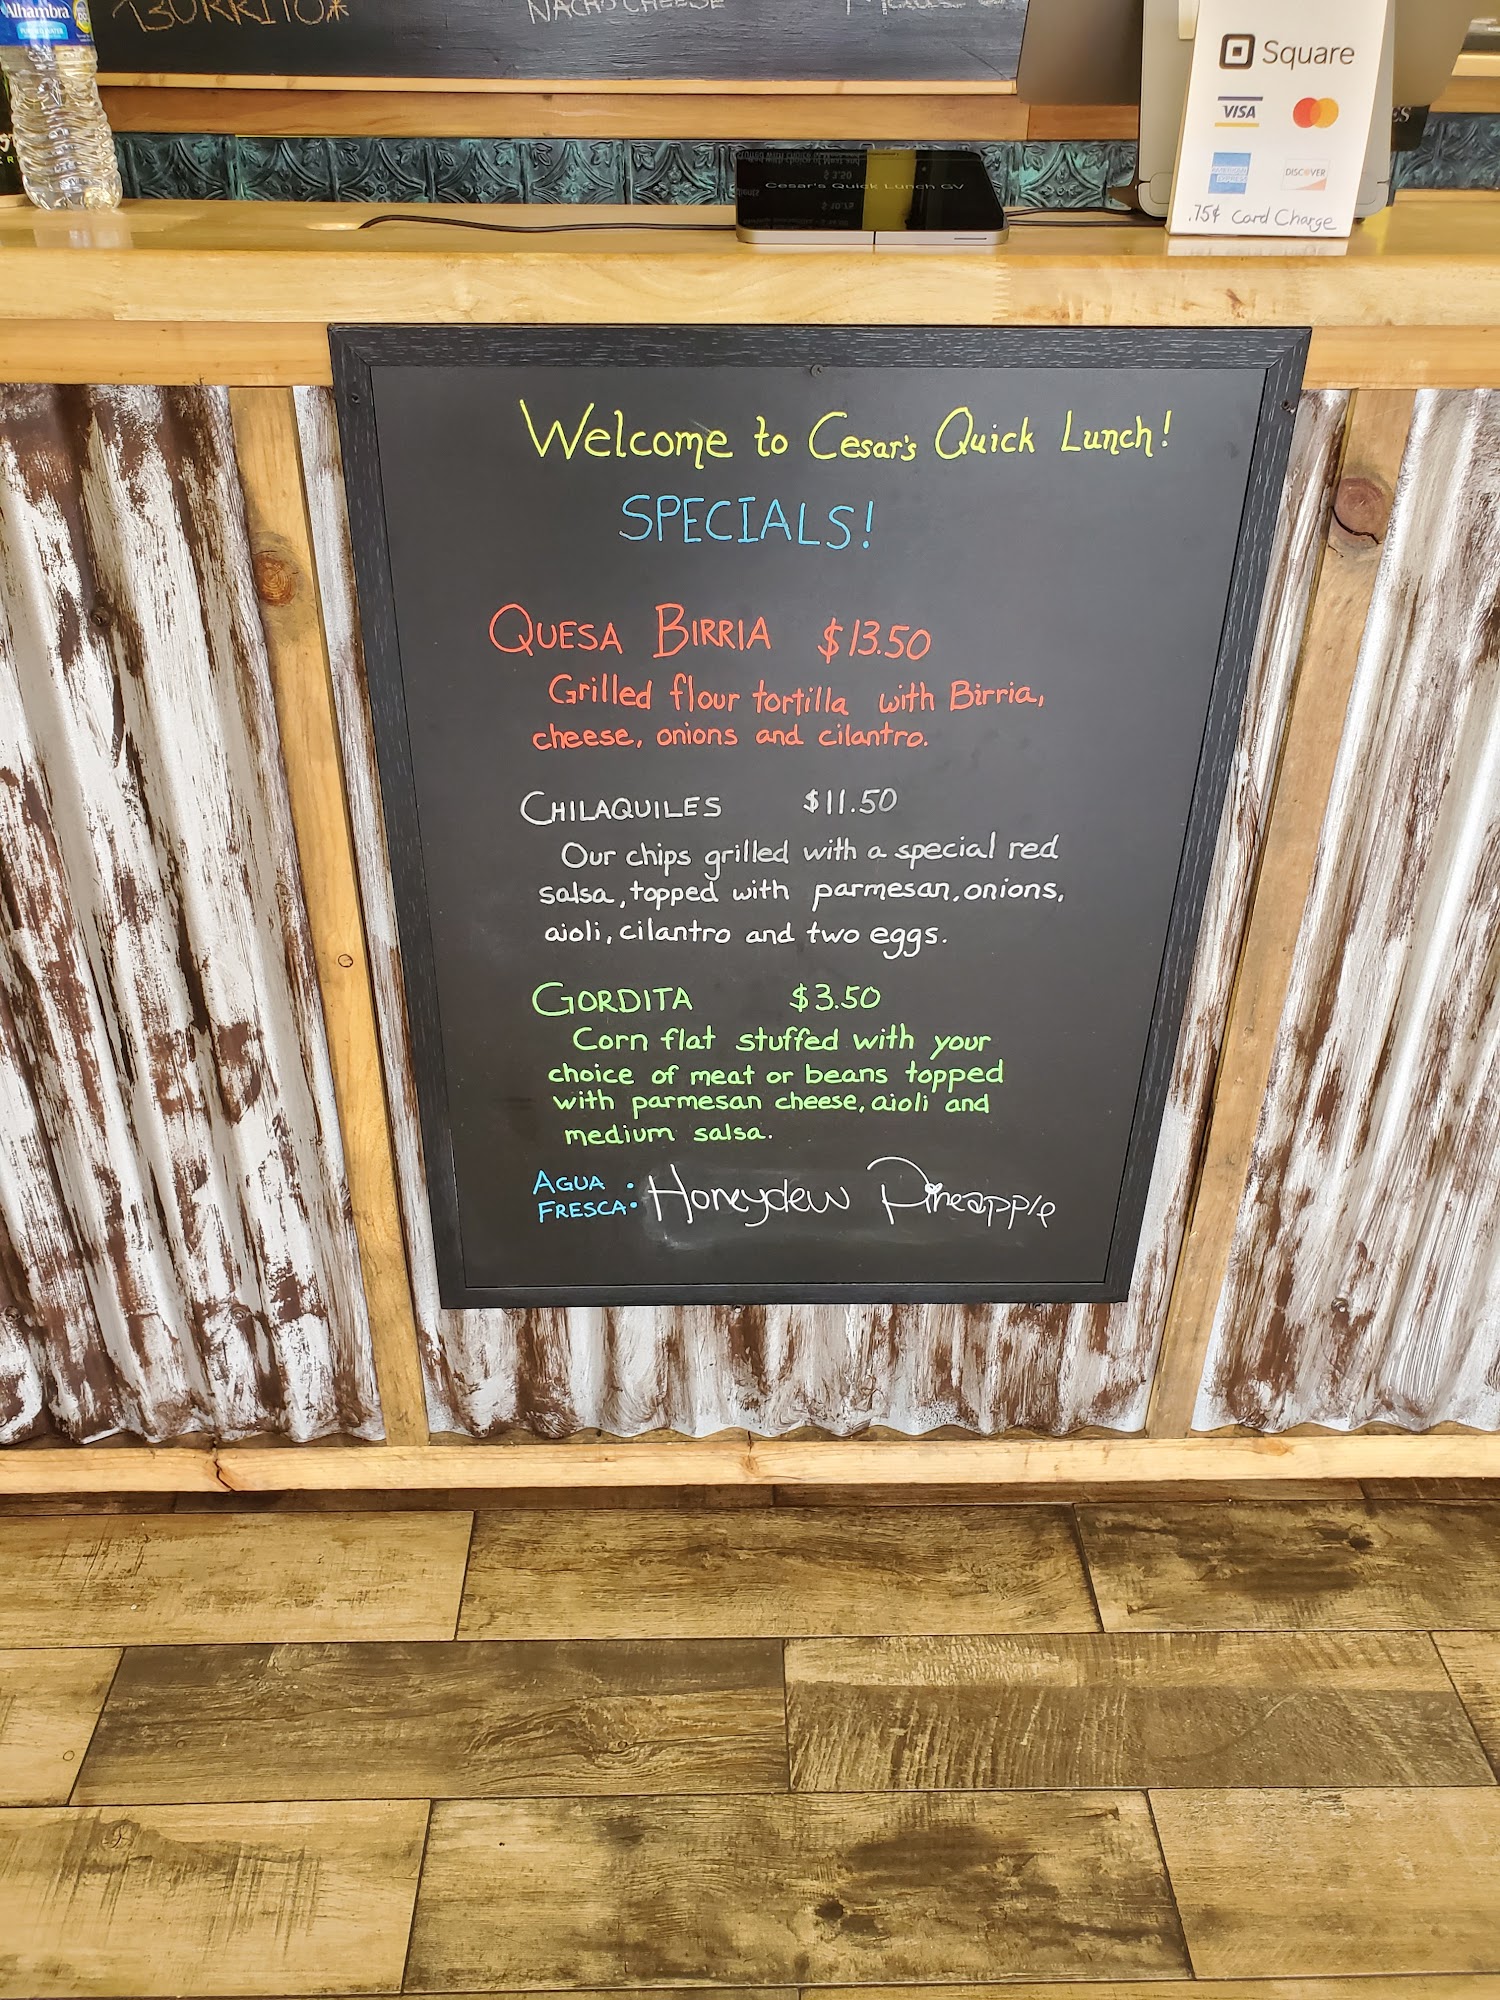 BURRITO*
NACHO CHEESE
Alhambra
Square
VISA
AMERICAN
EXPRESS
DISCOVER
.75¢ Card Charge
$3.50
Cesar's Quick Lunch GV
$10.75
Welcome to Cesar's Quick Lunch!
SPECIALS!
QUESA BIRRIA $13.50
Grilled flour tortilla with Birria,
cheese, onions and cilantro.
CHILAQUILES $11.50
Our chips grilled with a special red
salsa, topped with parmesan, onions,
aioli, cilantro and two eggs.
GORDITA $3.50
Corn flat stuffed with your
choice of meat or beans topped
with parmesan cheese, aioli and
medium salsa.
AGUA :
FRESCA
Honeydew Pineapple